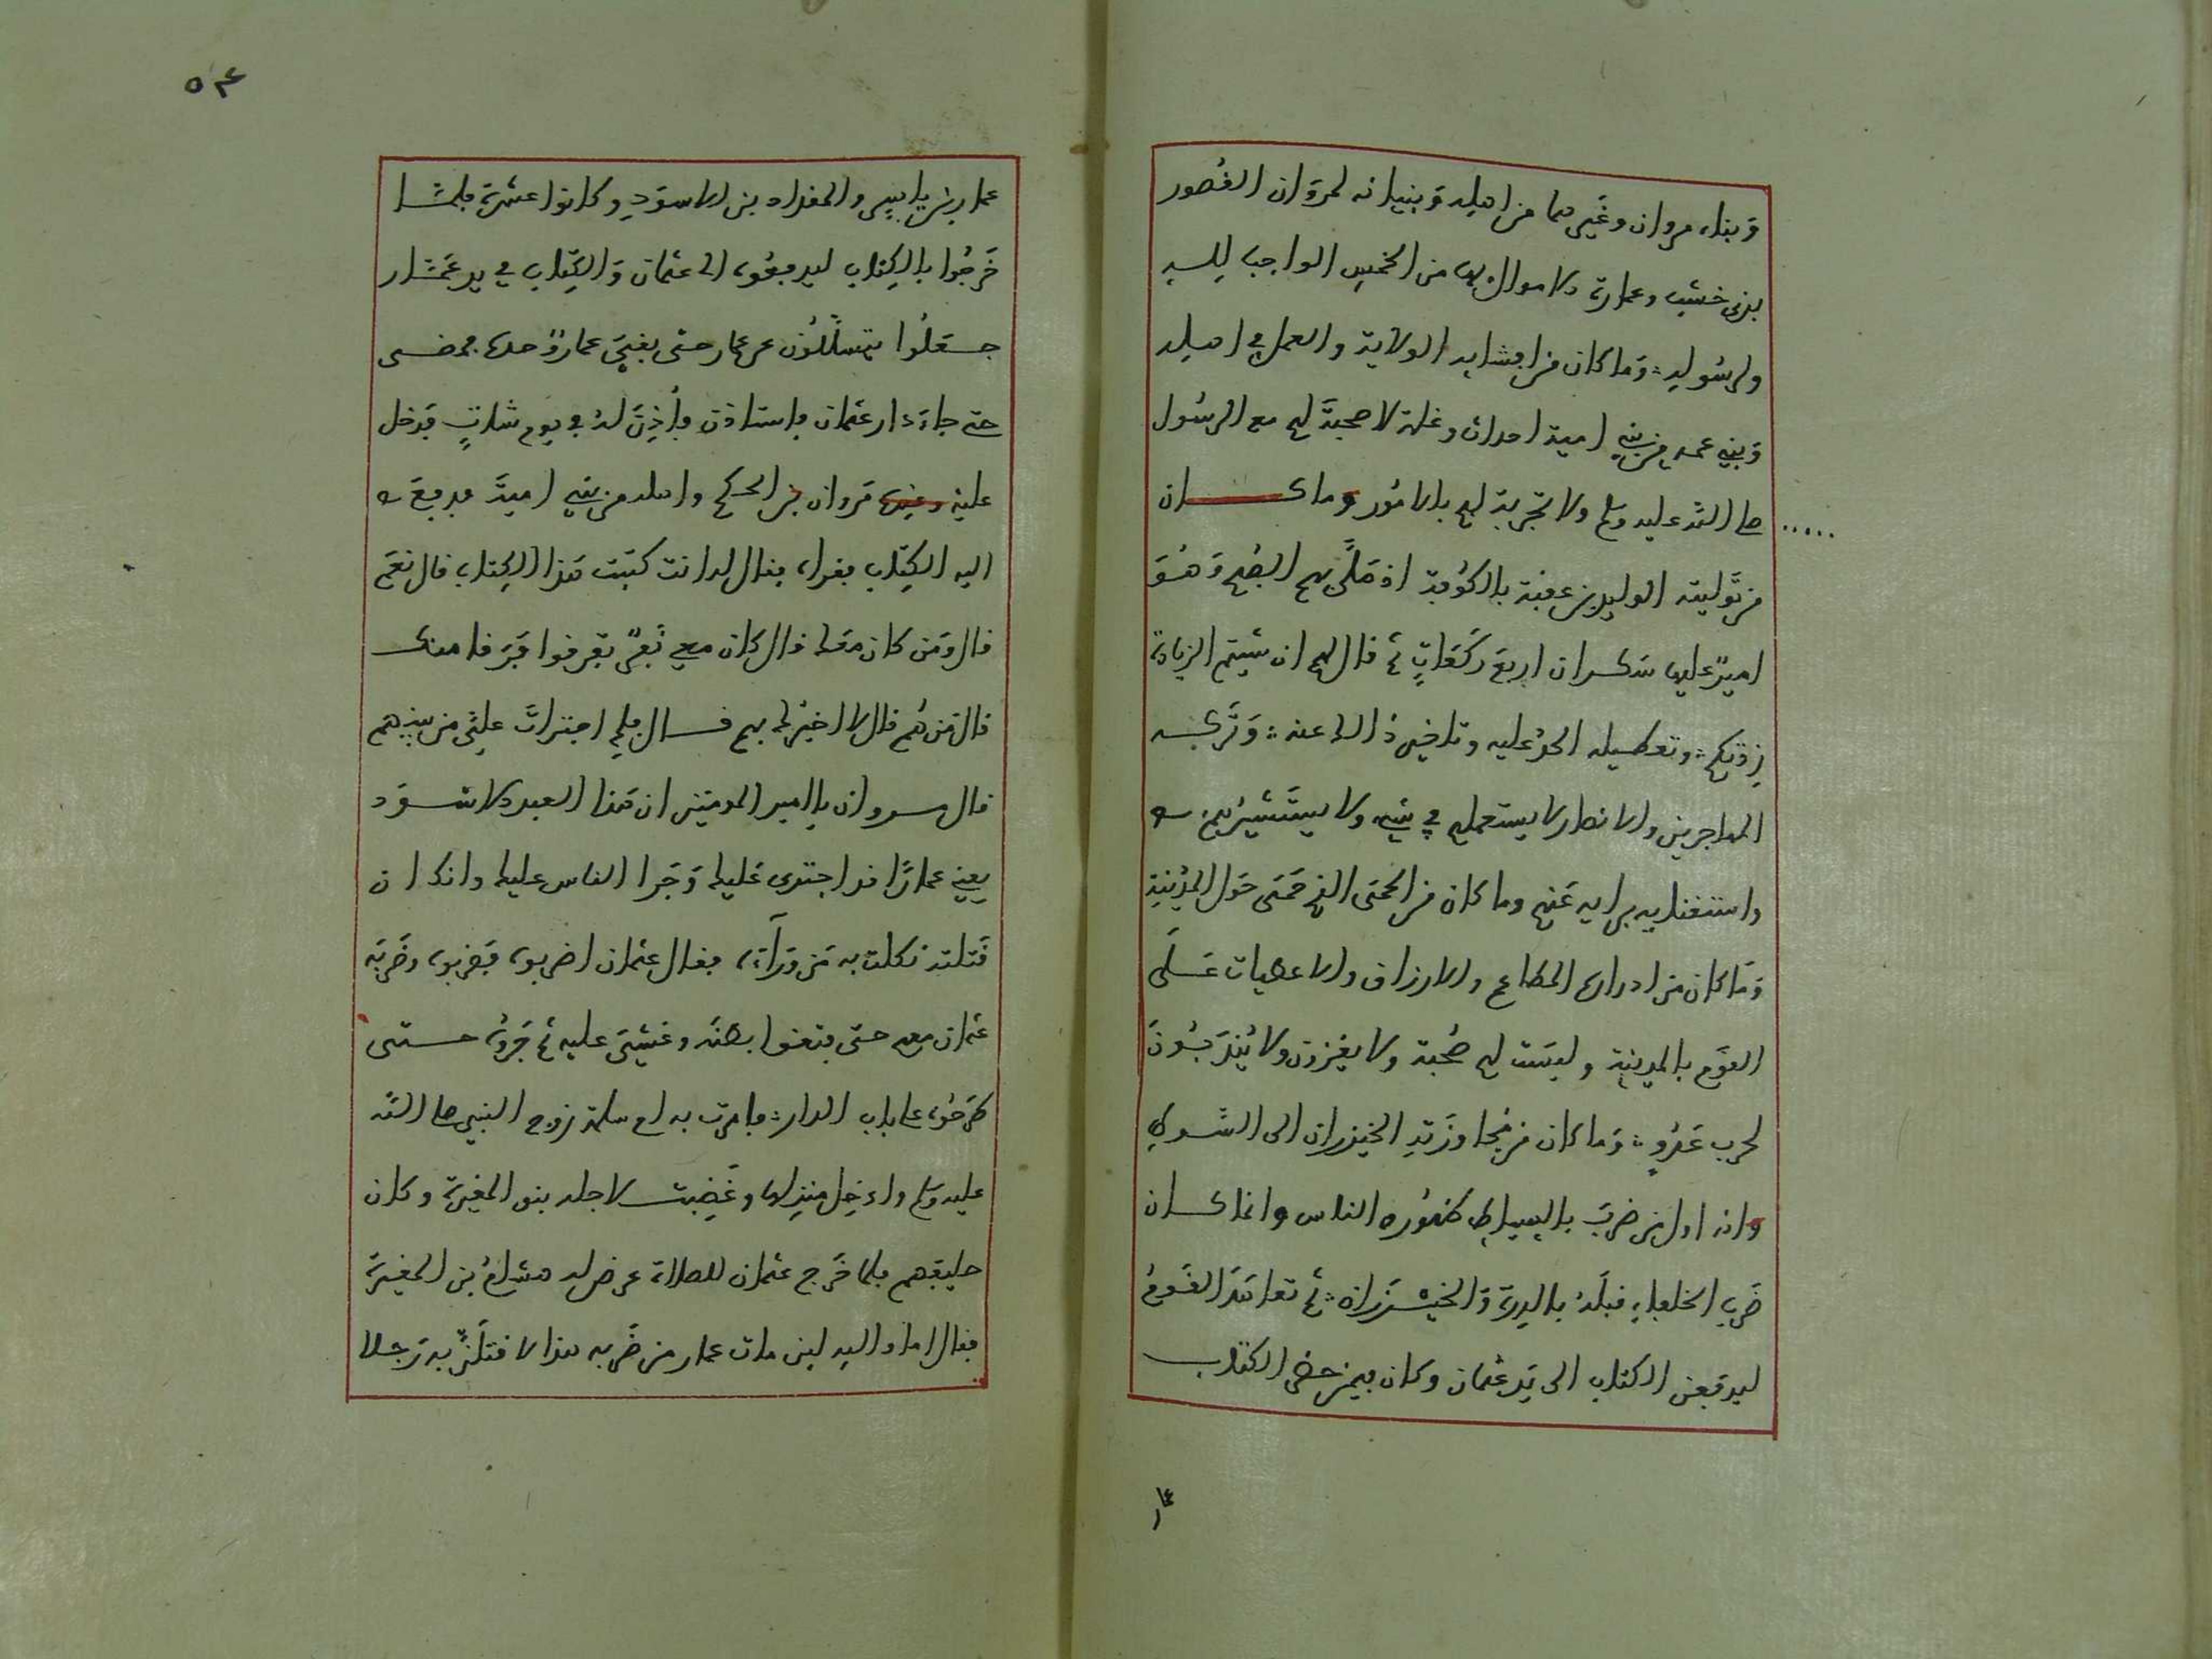 وبناء مروان وغيرهما من اهله وبنيانه لمروان القصور
بذي خشب وعمارة الاموال بها من الخمس الواجب لله
ولرسوله وما كان من افشايه الولاية والعمل في اهله
وبني عمه من بني امية احداث وغلمة لا صحبة لهم مع الرسول
صلى الله عليه وسلم ولا تجربة لهم بالامور وما كان
من توليته الوليد بن عقبة بالكوفة اذ صلى بهم الصبح وهو
امير عليها سكران اربع ركعات ثم قال لهم ان شيتم ازيادة
زدتكم وتعطيله الحد عليه وتاخير ذالك عنه وتركه
المهاجرين والانصار لا يستعملهم في شيء ولا يستشيرهم
واستغنايه برايه عنهم وما كان من الحمى الذي حمى حول المدينة
وما كان من ادراره القطايع والارزاق والاعطيات على
القوم بالمدينة وليست لهم صحبة ولا يغزون ولا يندبون
لحرب عدو وما كان من مجاوزته الخيزران الى السوط
وانه اول من ضرب بالسياط ظهور الناس وانما كان
ضرب الخلفاء قبله بالدرة والخيزرانة ثم تعاهد القوم
ليدفعن الكتاب الى يد عثمان وكان فيمن حضر الكتاب
٥٤
عمار بن ياسر والمقداد بن الاسود وكانوا عشرة فلما
خرجوا بالكتاب ليدفعوه الى عثمان والكتاب في يد عمار
جعلوا يتسللون عن عمار حتى بقي عمار وحده فمضى
حتى جاء دار عثمان فاستاذن فأذن له في يوم شات فدخل
عليه وعنده مروان بن الحكم واهله من بني امية فدفع
اليه الكتاب فقراه فقال له انت كتبت هذا الكتاب قال نعم
قال ومن كان معك قال كان معي نفر تفرقوا فرقا منك
قال من هم قال لا اخبرك بهم قال فلم اجترات علي من بينهم
قال مروان يا امير المومنين ان هذا العبد الاسود
يعني عمارا قد اجترى عليك وجرا الناس عليك وانك ان
قتلته نكلت به من وراءه فقال عثمان اضربوه فضربوه وضربه
عثمان معهم حتى فتقوا بطنه وغشي عليه ثم جروه حتى
طرحوه على باب الدار فامرت به ام سلمة زوج النبي صلى الله
عليه وسلم وادخل منزلها وغضبت لاجله بنو المغيرة وكان
حليفهم فلما خرج عثمان للصلاة عرض له هشام بن المغيرة
فقال اما والله لين مات عمار من ضربه هذا لاقتلن به رجلا